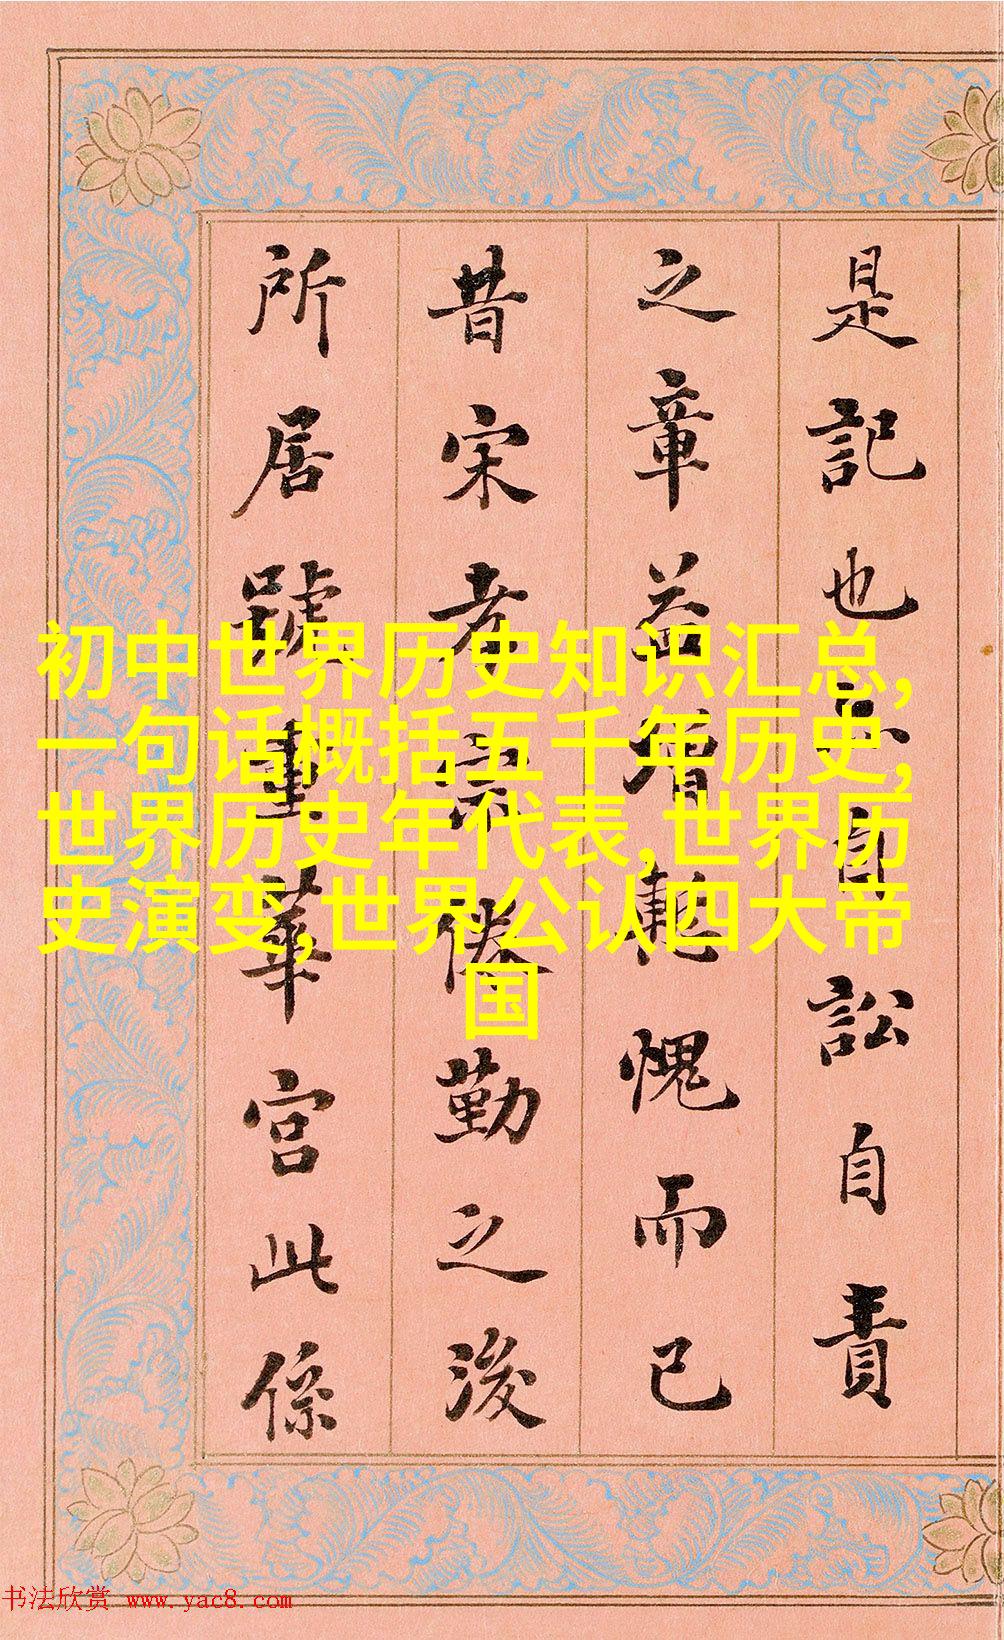 是記也亦自訟自責
之章益增慙愧而已
昔宋孝宗倦勤之後
所居號重華宮此係
初中世界历史知识汇总,
一句话概括五千年历史,
世界历史年代表,世界历
史演变,世界公认四大帝
国
书法欣赏 www.yac8.com